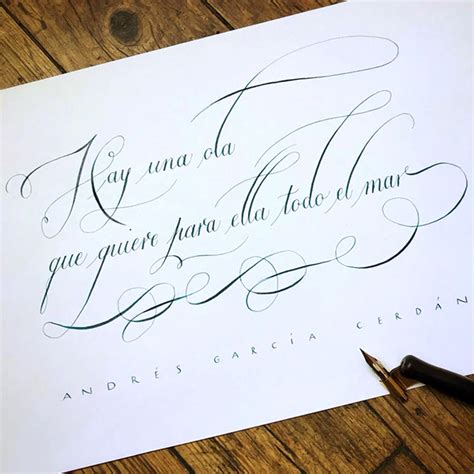 Hay una ola
que quiere para ella todo el mar
ANDRÉS GARCÍA CERDÁN